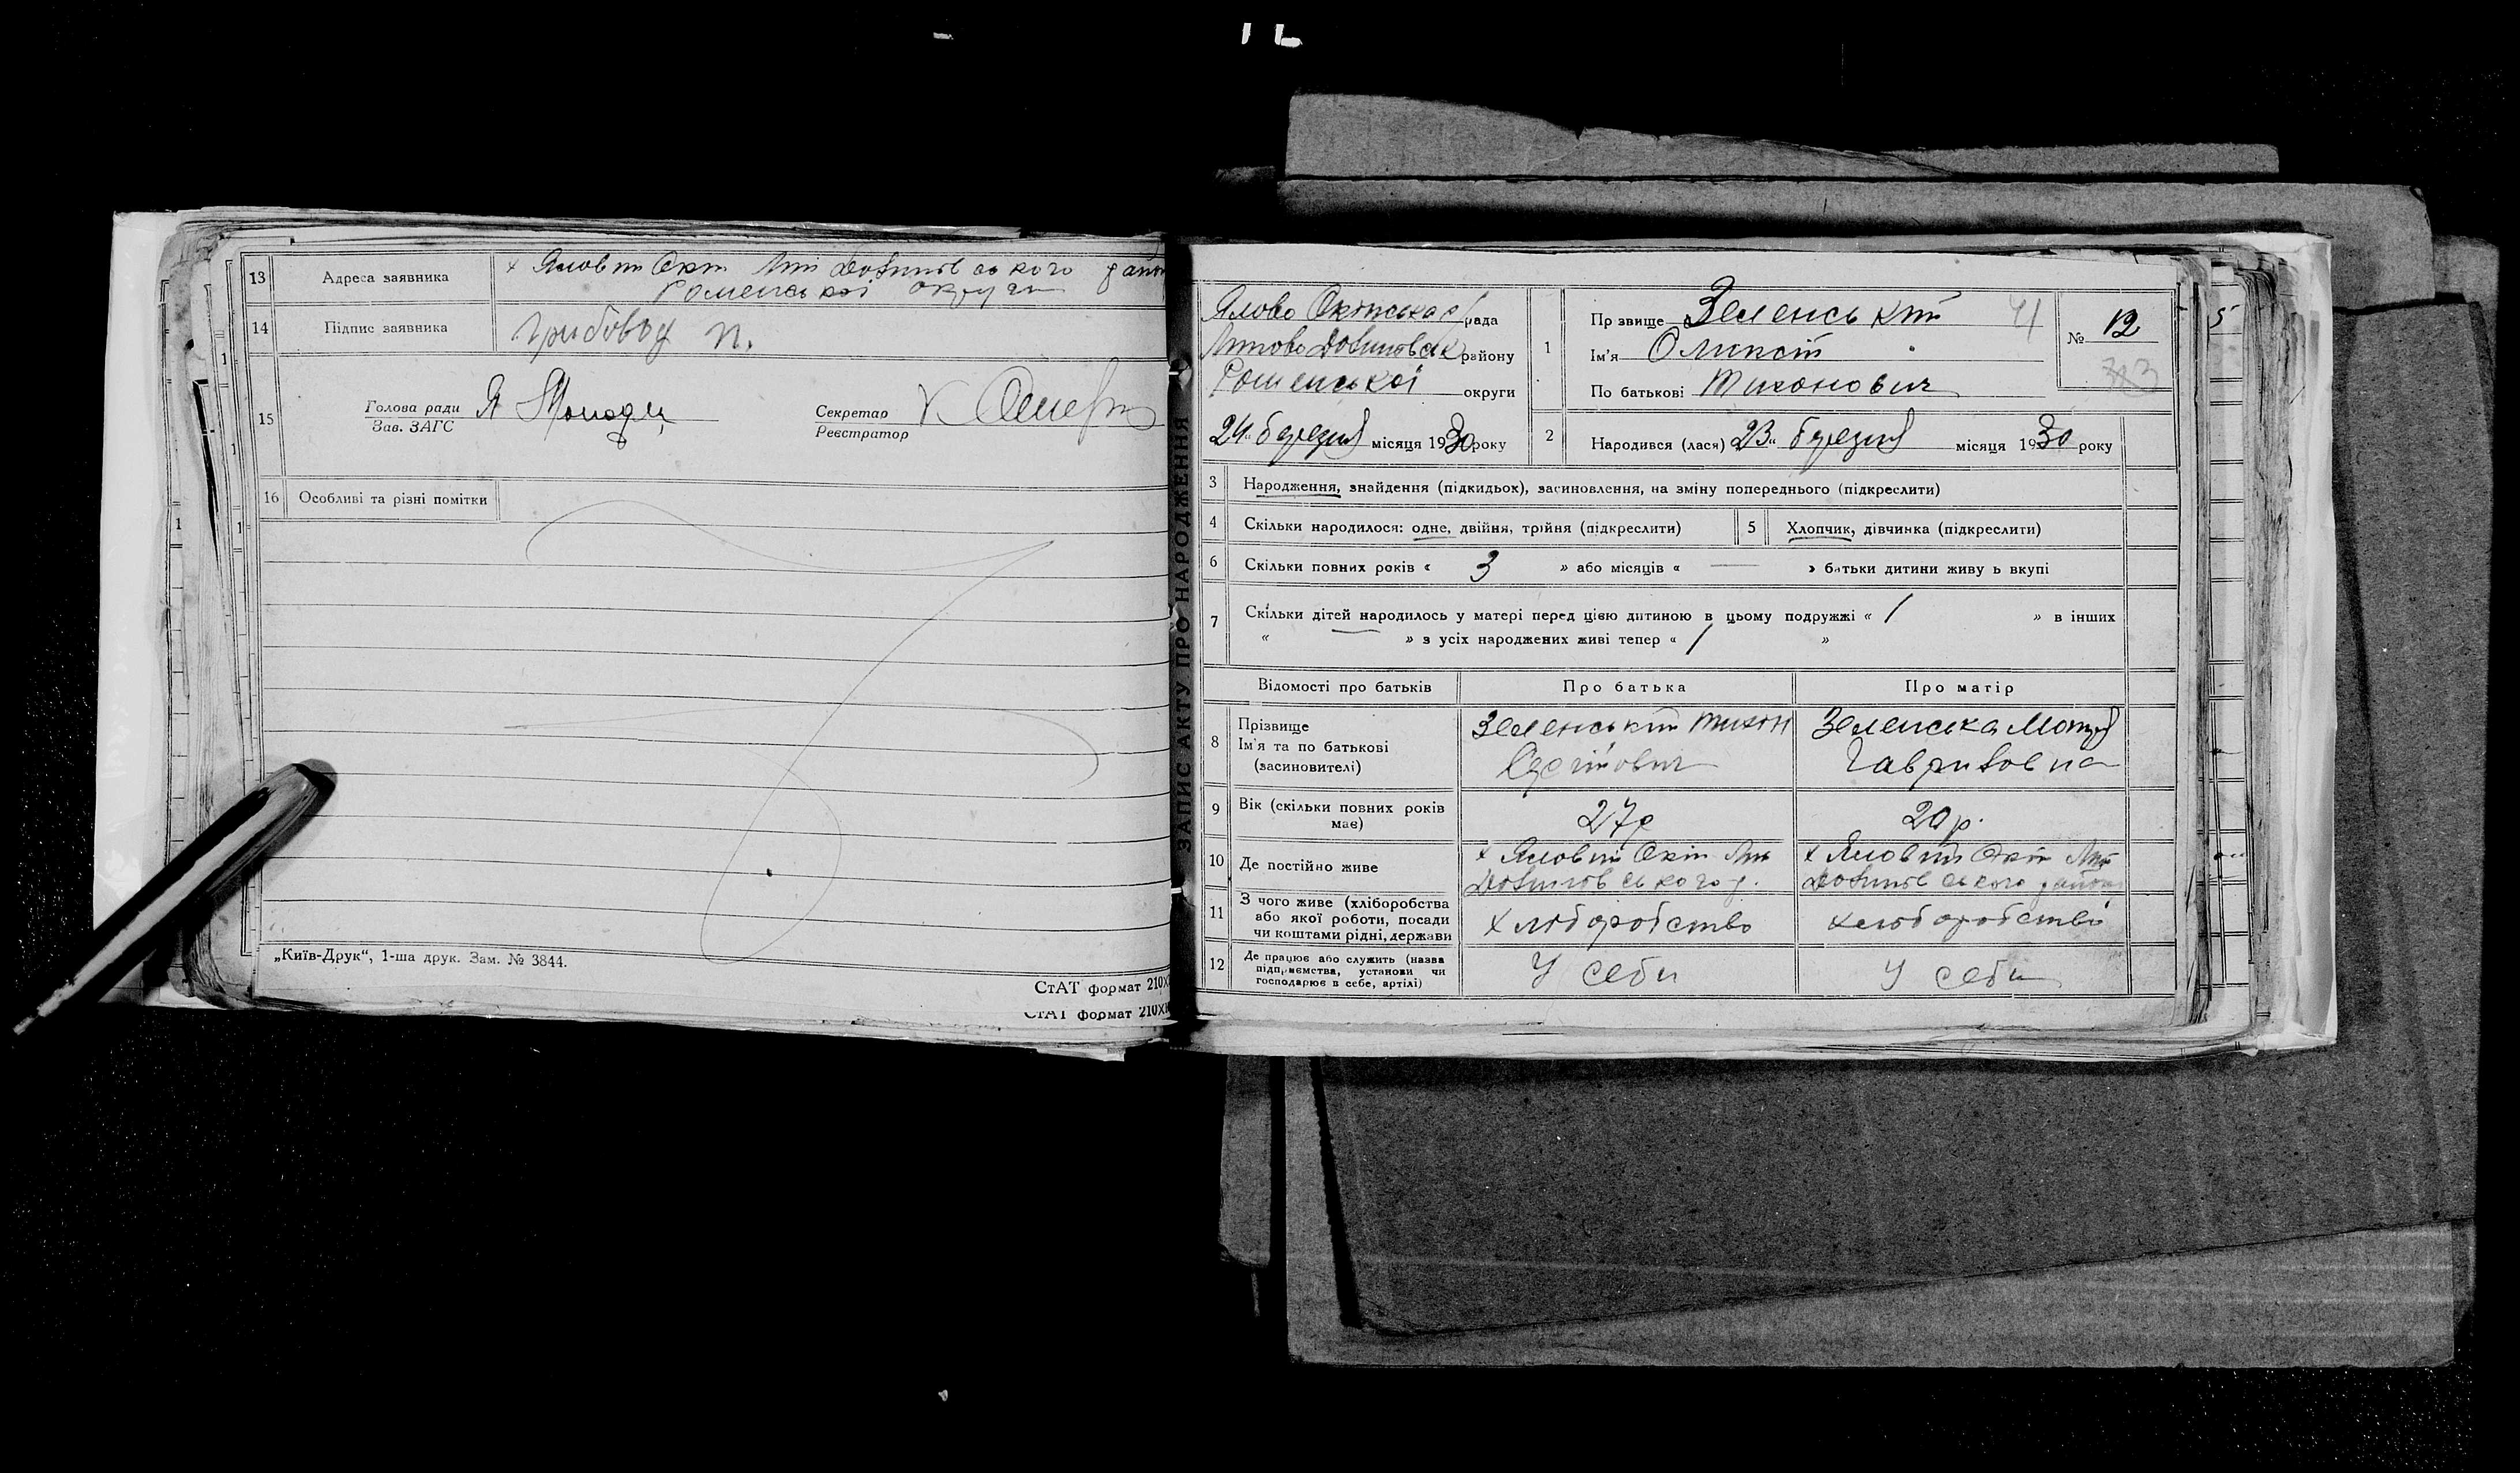 13 Адреса заявника х Яловий Окіп Лип Долинського район
Роменської округи
14 Підпис заявника Грибовод П.
15 Голова ради
Зав. ЗАГС
Секретар
Реєстратор
16 Особливі та різні помітки
„Київ-Друк“, 1-ша друк. Зам. № 3844.
СтАТ формат 210Х
СтАТ формат 210Х
ЗАПИС АКТУ ПРО НАРОДЖЕННЯ
Ялово Окіпська рада
Липово Долинськ району
Роменської округи
24 „ березня місяця 1930 року
1 Пр звище Зеленський 41
Ім'я Олексій
По батькові Тихонович
№ 12
2 Народився (лася) 23 „ березня місяця 1930 року
3 Народження, знайдення (підкидьок), засиновлення, на зміну попереднього (підкреслити)
4 Скільки народилося: одне, двійня, трійня (підкреслити) 5 Хлопчик, дівчинка (підкреслити)
6 Скільки повних років « 3 » або місяців « — » батьки дитини живу ь вкупі
7 Скільки дітей народилось у матері перед цією дитиною в цьому подружжі « 1 » в інших
« — » з усіх народжених живі тепер « 1 »
Відомості про батьків Про батька Про матір
8 Прізвище
Ім'я та по батькові
(засиновителі)
Зеленський Тихон
Зеленська Мотря
Гавриловна
9 Вік (скільки повних років
має)
27 р
20 р.
10 Де постійно живе
х Яловий Окіп Лип
Долинського р.
х Яловий Окіп Лип
Долинського район
11 З чого живе (хліборобства
або якої роботи, посади
чи коштами рідні, держави
хліборобство
хліборобство
12 Де працює або служить (назва
підприємства, установи чи
господарює в себе, артілі)
У себи
У себи
5